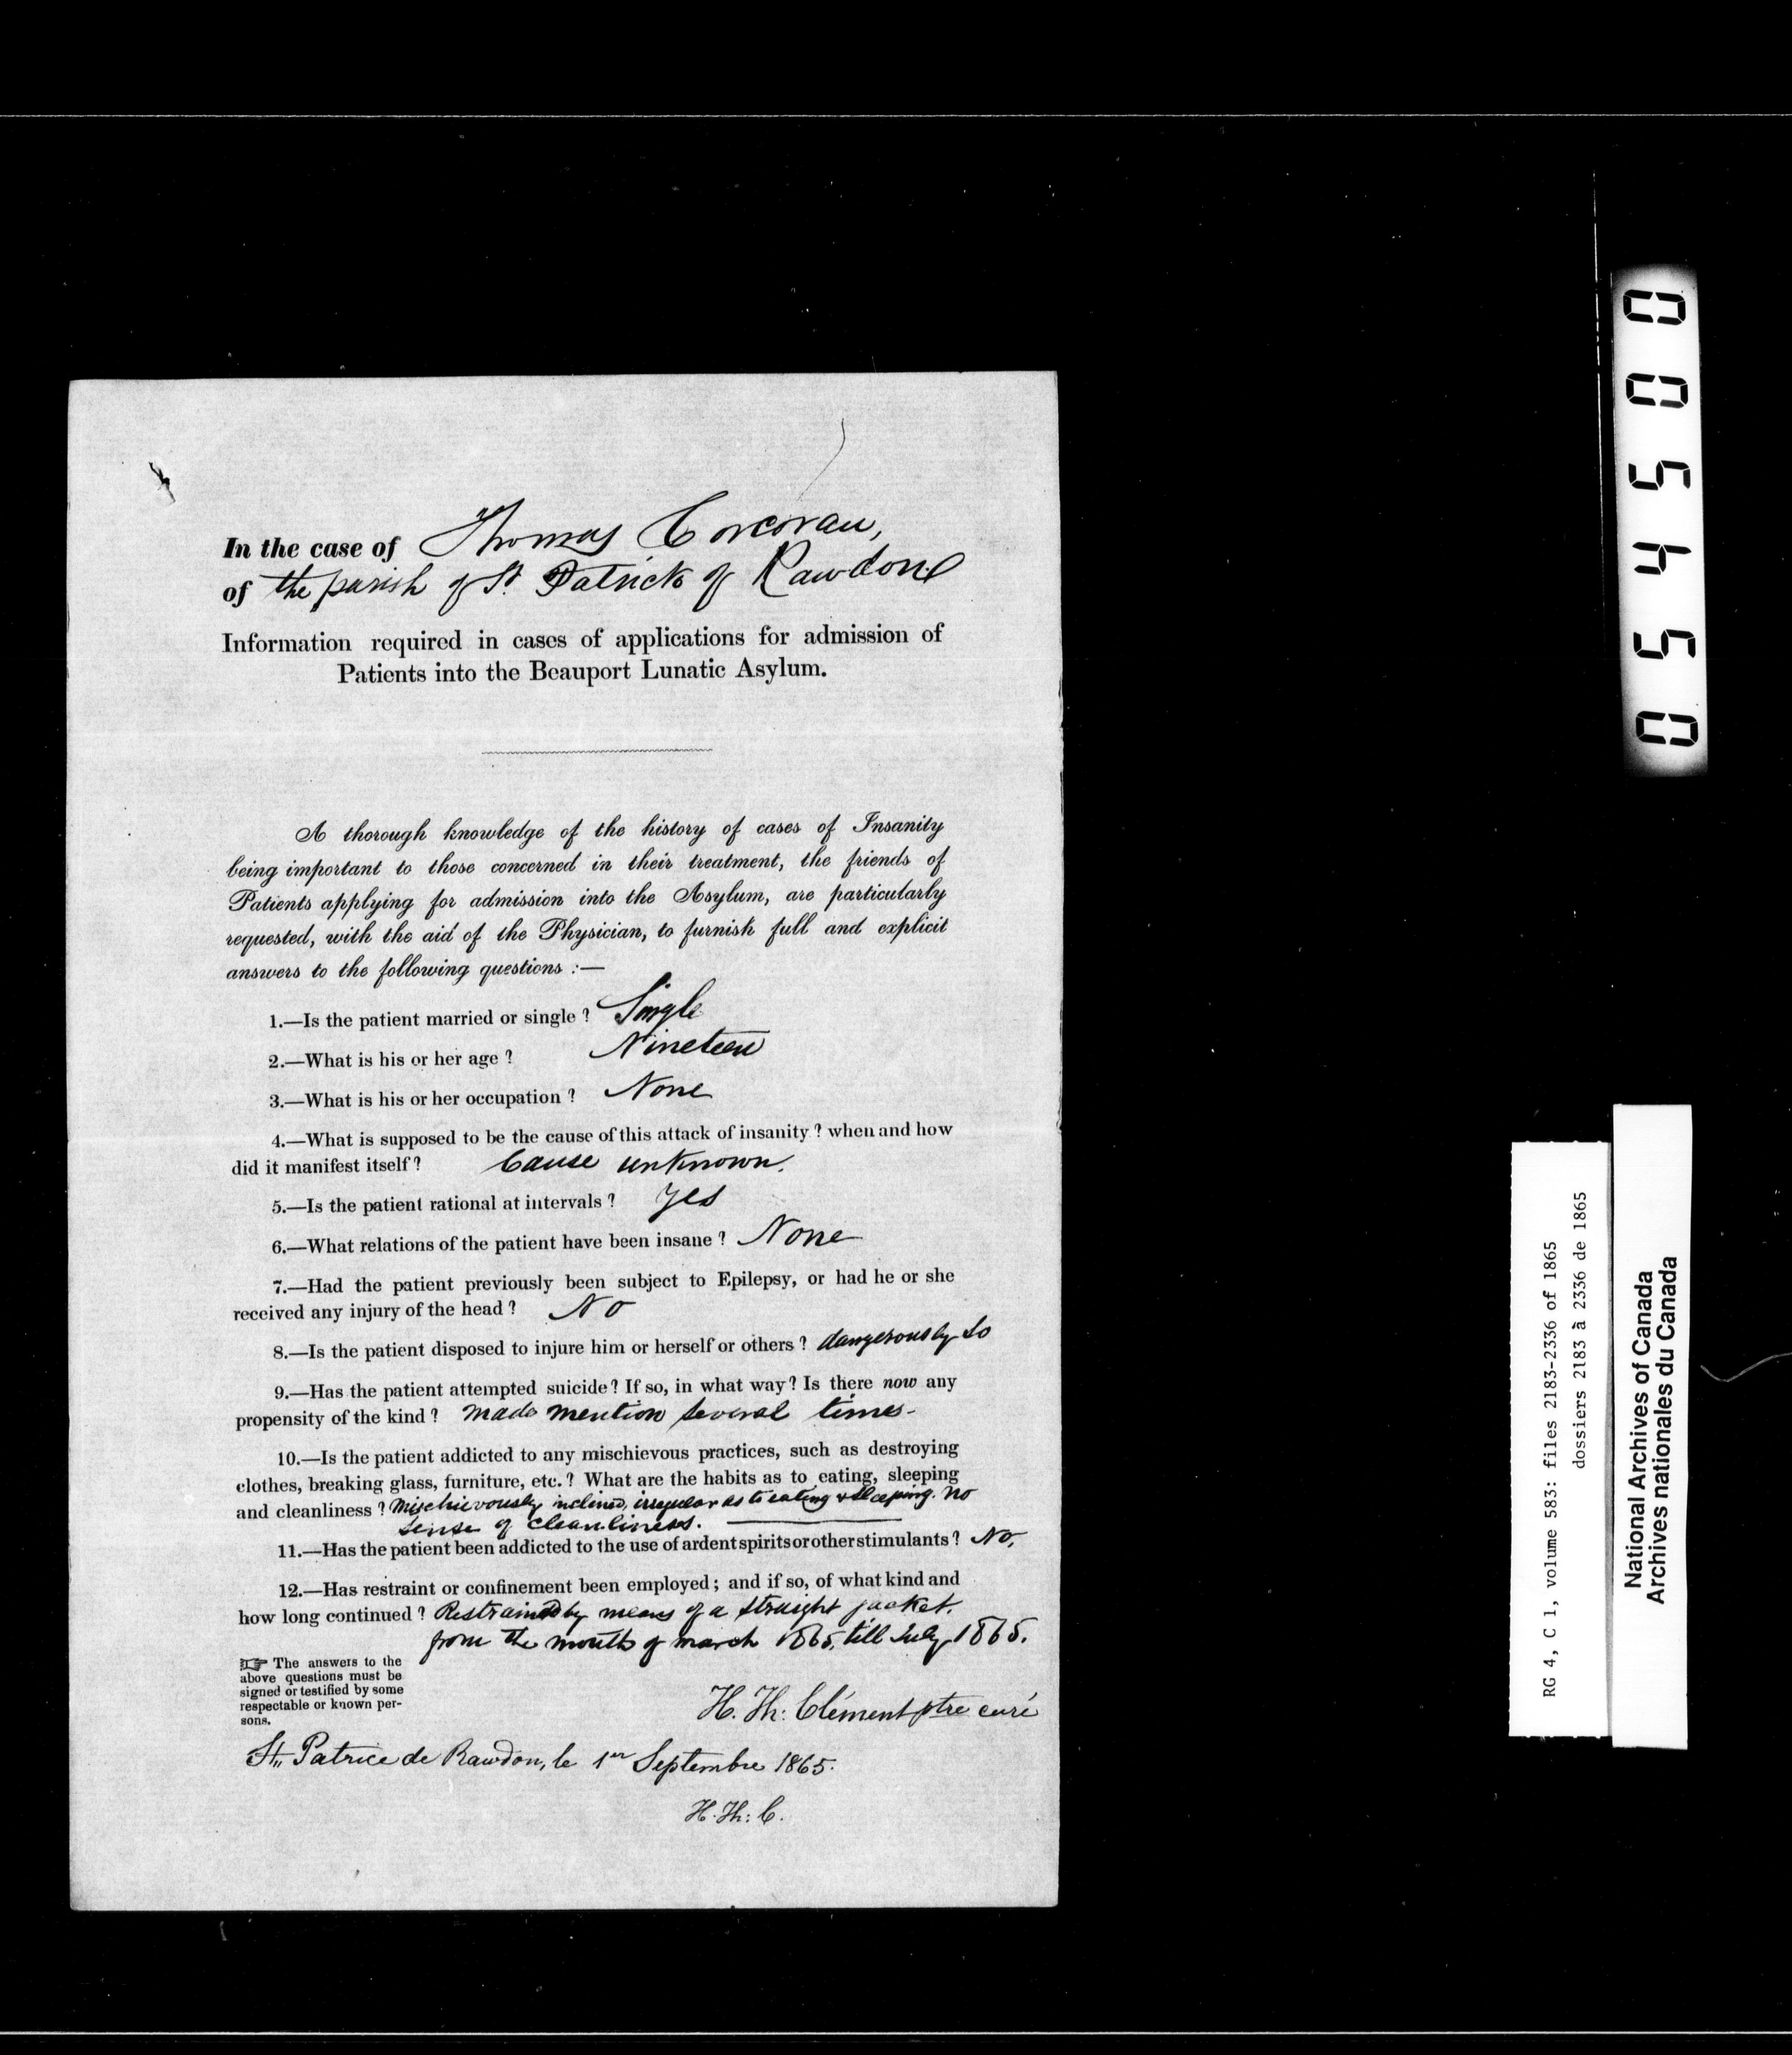 In the case of Thomas Corcoran,
of the parish of St. Patrick of Rawdon
Information required in cases of applications for admission of
Patients into the Beauport Lunatic Asylum.
A thorough knowledge of the history of cases of Insanity
being important to those concerned in their treatment, the friends of
Patients applying for admission into the Asylum, are particularly
requested, with the aid of the Physician, to furnish full and explicit
answers to the following questions :—
1.—Is the patient married or single ? Single
2.—What is his or her age ? Nineteen
3.—What is his or her occupation ? None
4.—What is supposed to be the cause of this attack of insanity ? when and how
did it manifest itself ? Cause unknown.
5.—Is the patient rational at intervals ? Yes
6.—What relations of the patient have been insane ? None
7.—Had the patient previously been subject to Epilepsy, or had he or she
received any injury of the head ? No
8.—Is the patient disposed to injure him or herself or others ? dangerously so
9.—Has the patient attempted suicide ? If so, in what way ? Is there now any
propensity of the kind ? made mention several times-
10.—Is the patient addicted to any mischievous practices, such as destroying
clothes, breaking glass, furniture, etc. ? What are the habits as to eating, sleeping
and cleanliness ? Mischievously inclined, irregular as to eating & sleeping. No
sense of cleanliness.
11.—Has the patient been addicted to the use of ardent spirits or other stimulants ? No,
12.—Has restraint or confinement been employed ; and if so, of what kind and
how long continued ? Restrained by means of a straight jacket.
from the month of march 1865, till July 1865.
☞ The answers to the
above questions must be
signed or testified by some
respectable or known per-
sons.
H. Th: Clément ptre curé
St. Patrice de Rawdon, le 1er Septembre 1865.
H. Th: C.
005450
RG 4, C 1, volume 583: files 2183-2336 of 1865
dossiers 2183 à 2336 de 1865
National Archives of Canada
Archives nationales du Canada